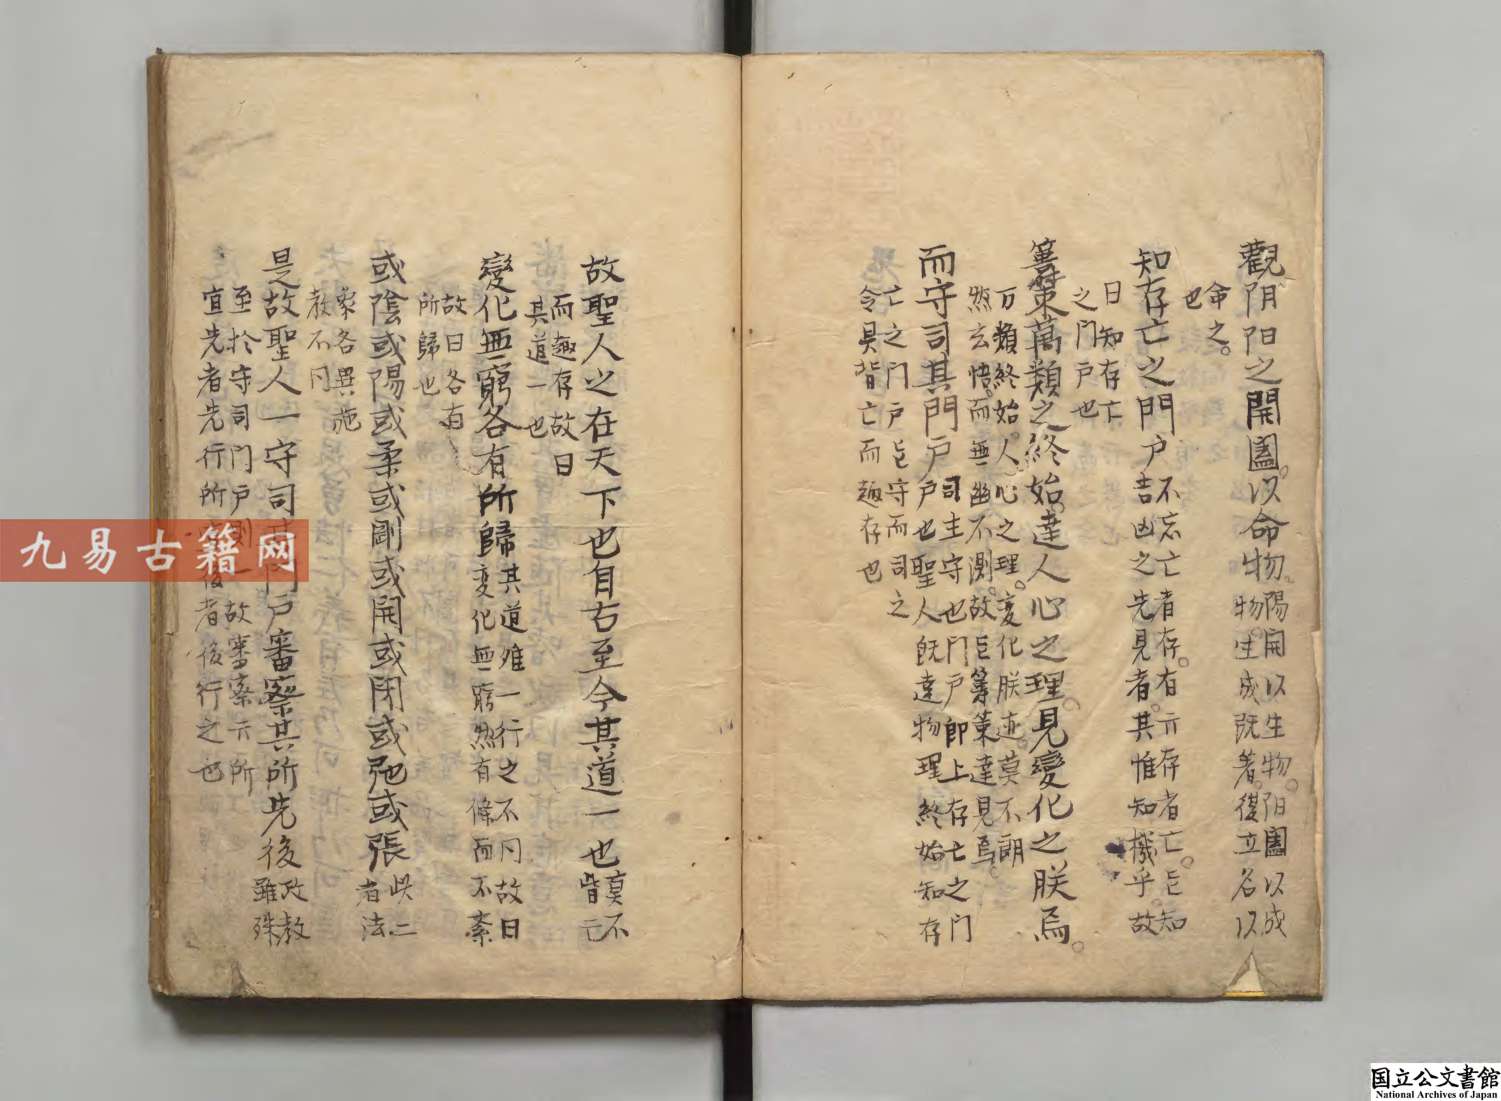 觀阴阳之開闔以命物陽開以生物阳闔以成
物生成既著復立名以
命之
也
知存亡之門户不忘亡者存有亓存者亡㠯知
吉凶之先見者其惟知機乎故
曰知存亡
之門户也
籌策萬類之終始達人心之理見變化之朕焉
万類終始人心之理变化朕迹莫不朗
然玄悟而無幽不測故㠯籌策達見焉
而守司其門户司主守也門户即上存亡之門
户也聖人既達物理終始知存
亡之门户㠯守而司之
令其背亡而趣存也
故聖人之在天下也自古至今其道一也莫不
皆亓
而趣存故曰
其道一也
變化無窮各有所歸其道难一行之不冋故曰
变化無窮然有條而不紊
故曰各有
所歸也
或陰或陽或柔或剛或開或闭或弛或張此二
者法
象各異施
教不冋
是故聖人一守司其門户審察其所先後政教
雖殊
至於守司门户則一故審察亓所
宜先者先行所宜後者後行之也
九易古籍网
国立公文書館
National Archives of Japan